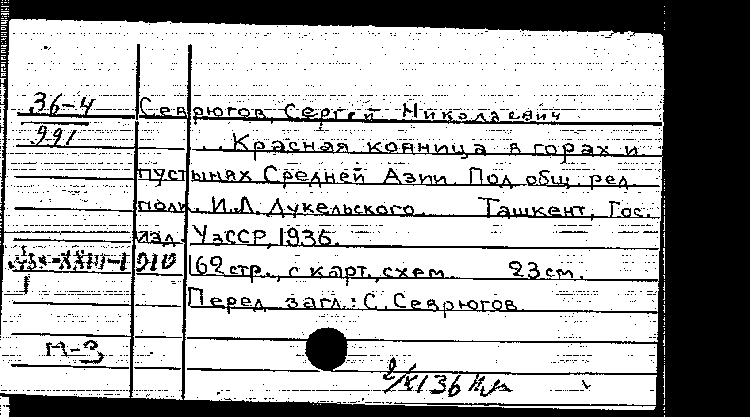 36-4 Севрюгов, Сергей Николаевич
991 ... Красная конница в горах и
пустынях Средней Азии. Под общ. ред.
полк. И.Л. Дукельского. Ташкент, Гос.
изд. УзССР, 1936.
162 стр., с карт., схем. 23 см.
Перед загл.: С. Севрюгов
М-3
2/XI 36